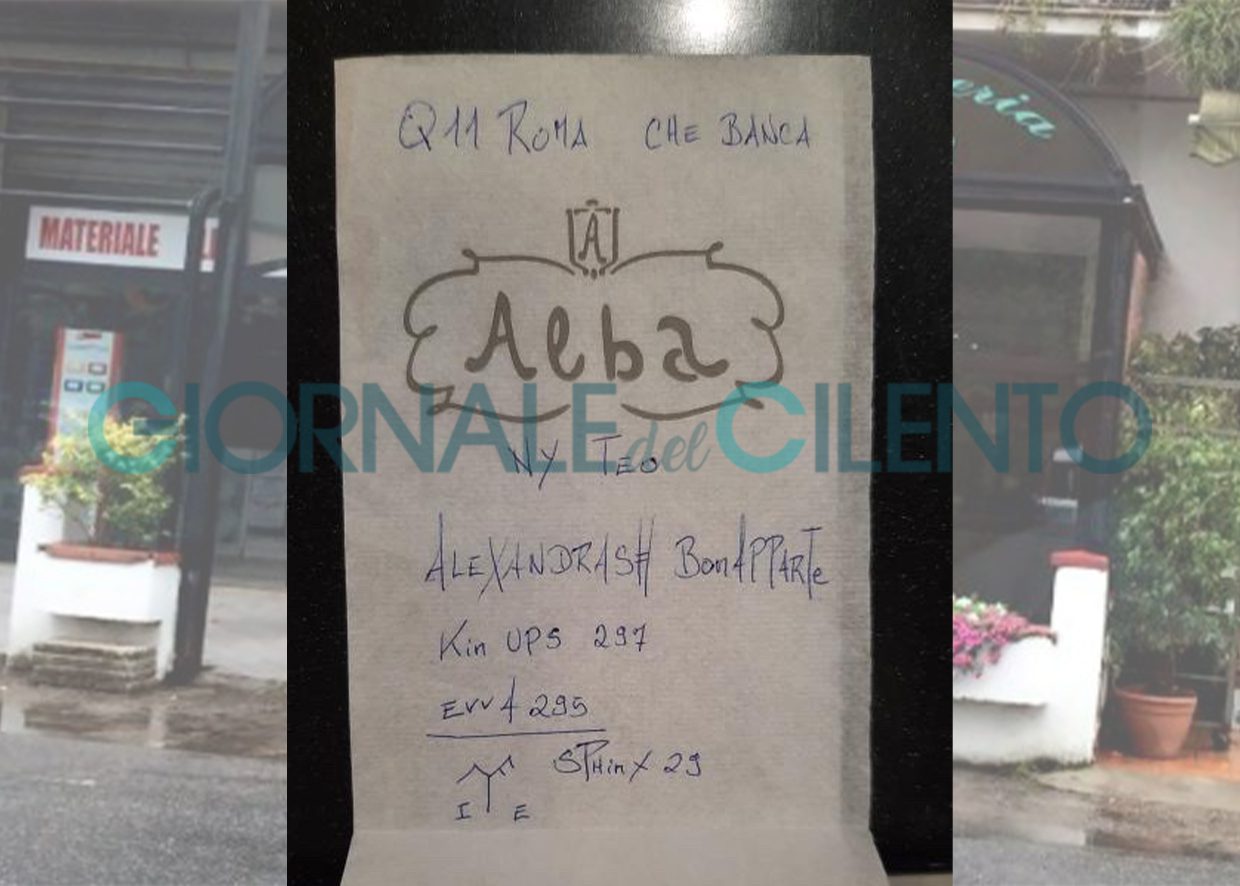 Q11 ROMA CHE BANCA
A
Alba
MATERIALE
eria
GIORNALE del CILENTO
NY TEO
ALEXANDRASH BONAPPARTE
Kin UPS 297
EVVA 295
SPHinX 29
I E